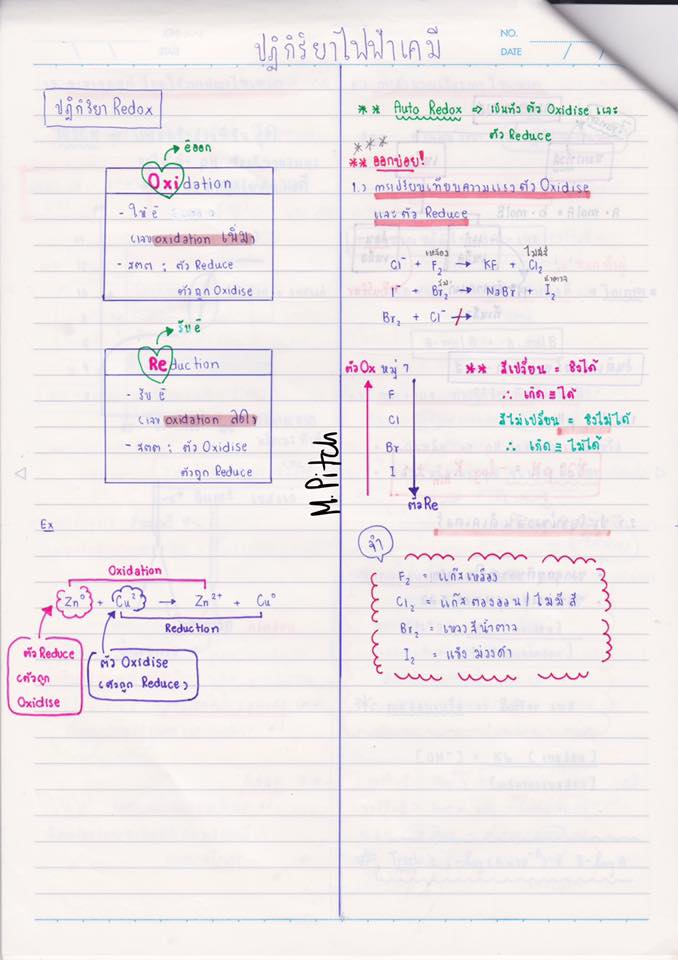 ปฏิกิริยาไฟฟ้าเคมี
NO.
DATE / /
ปฏิกิริยา Redox
e ออก
Oxidation
- ให้ ē
(เลข oxidation เพิ่ม)
- สตต ; ตัว Reduce
ตัวถูก Oxidise
รับ ē
Reduction
- รับ ē
(เลข oxidation ลด)
- สตต ; ตัว Oxidise
ตัวถูก Reduce
Ex
Oxidation
Zn⁰ + Cu²⁺ → Zn²⁺ + Cu⁰
Reduction
ตัว Reduce
(ตัวถูก
Oxidise
ตัว Oxidise
(ตัวถูก Reduce)
M.Pitch
** Auto Redox ⇒ เป็นทั้ง ตัว Oxidise และ
ตัว Reduce
***
** ออกบ่อย!
1.) การเปรียบเทียบความแรง ตัว Oxidise
และ ตัว Reduce
เหลือง ไม่มีสี
Cl⁻ + F₂ → KF + Cl₂
ส้ม น้ำตาล
I⁻ + Br₂ → NaBr + I₂
Br₂ + Cl⁻ ↛
ตัว Ox หมู่ 7
F
Cl
Br
I
ตัว Re
** สีเปลี่ยน = ชิงได้
∴ เกิด ≡ ได้
สีไม่เปลี่ยน = ชิงไม่ได้
∴ เกิด ≡ ไม่ได้
จำ
F₂ = แก๊สเหลือง
Cl₂ = แก๊สตองอ่อน / ไม่มีสี
Br₂ = เหลวสีน้ำตาล
I₂ = แข็ง ม่วงดำ